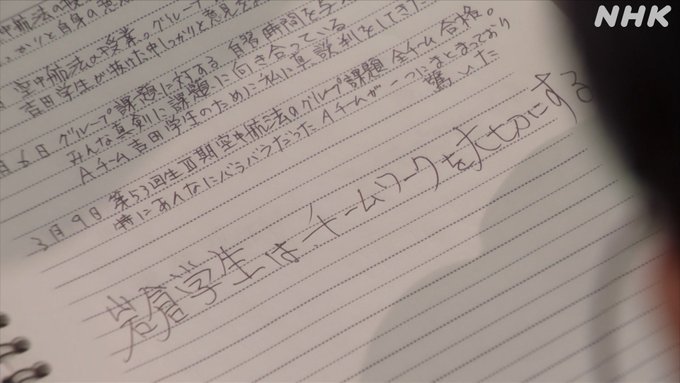 NHK
空中航法の授業。グループ
自身の意
空中航法のグループ課題に対する自習時間を与
吉田学生が抜けた中しっかりと意見を
月6日 グループ課題に対する自習時間を
みんな真剣に課題に向き合っている
Aチーム吉田学生のために私に直談判をしてきた
3月9日 第53回生Ⅱ期空中航法のグループ課題 全チーム合格。
特にあんなにバラバラだったAチームが一つにまとまっており
驚いた
岩倉学生はチームワークを大切にする